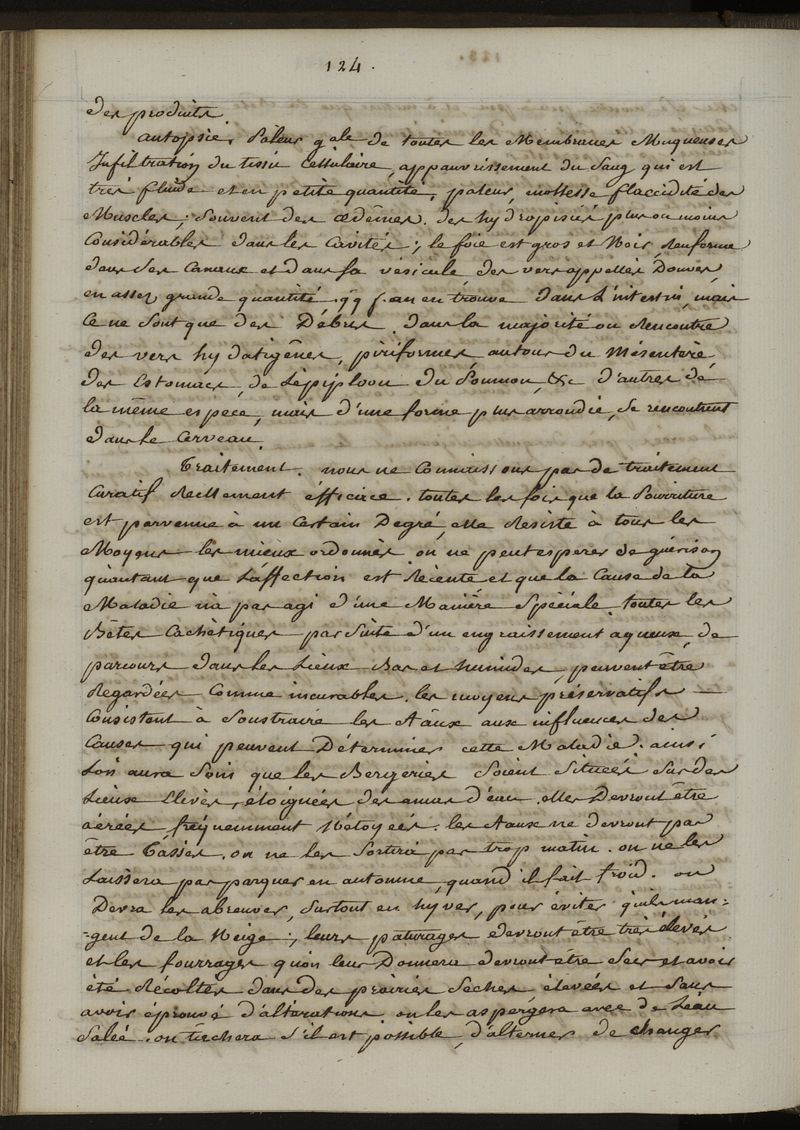 124.
des produits.
autopsie. Pâleur gale de toutes les Membranes Muqueuses
Infiltration du tissu Cellulaire, appauvrissement du Sang qui est
très fluide et en petite quantité, paleur, mollesse flaccidité des
Muscles, Souvent des œdêmes. des hydropisies plus ou moins
Considérables dans les Cavités; le foie est gros et Noir, Renferme
dans Ses Canaux et dans sa vésicule, des vers appellés Douves,
en assez grande quantité. qq f. on en trouve dans L'intestin, mais
Ce ne Sont que des Débris. dans la majorité on Rencontre
des vers hydatigênes, piriformes, autour du Mésentère
des Estomacs, de L'épiploon du Poumon, &c d'autres de
la même espece, mais d'une forme plus arrondie, Se rencontrent
dans le Cerveau.
Traitement. nous ne Connaissons pas de traitement
Curatif Réellement éfficace. toutes les fois que la Pourriture
est parvenue à un Certain Degré, elle Résiste à tous les
Moyens les mieux ordonnés. on ne peut esperer de guérison
qu'autant que L'affection est Récente et que la Cause de la
Maladie n'a pas agi d'une Manière Spéciale. toutes les
Bêtes Cachétiques par Suite d'un engraissement aqueux, de
parcours dans les Lieux Bas et humides, peuvent être
Regardées Comme incurables. les moyens préservatifs
Consistent à Soustraire les Aāux aux influences des
Causes qui peuvent Déterminer cette Maladie. ainsi
L'on aura Soin que les Bergeries Soient Situées Sur des
Lieux Elevés, éloignées des amas d'eau. elles Devront être
aérées, fréquemment Nétoyeés. les Aaux ne devront pas
être Tassés. on ne les Sortira pas trop matin. on ne les
Laissera pas parquer en automne, quand il fait froid. on
Devra les abreuver, Surtout en hyver, pour éviter qu'ils man-
-gent de la Neige; leurs paturages devront être très élevés
et les fourrages qu'on leur Donnera devront être Secs et avoir
été Récoltés dans des prairies Seches, élevées et Sans
avoir éprouvé d'altérations. on les aspergera avec de L'eau
Salée. on tachera S'il est possible, d'alterner de changer